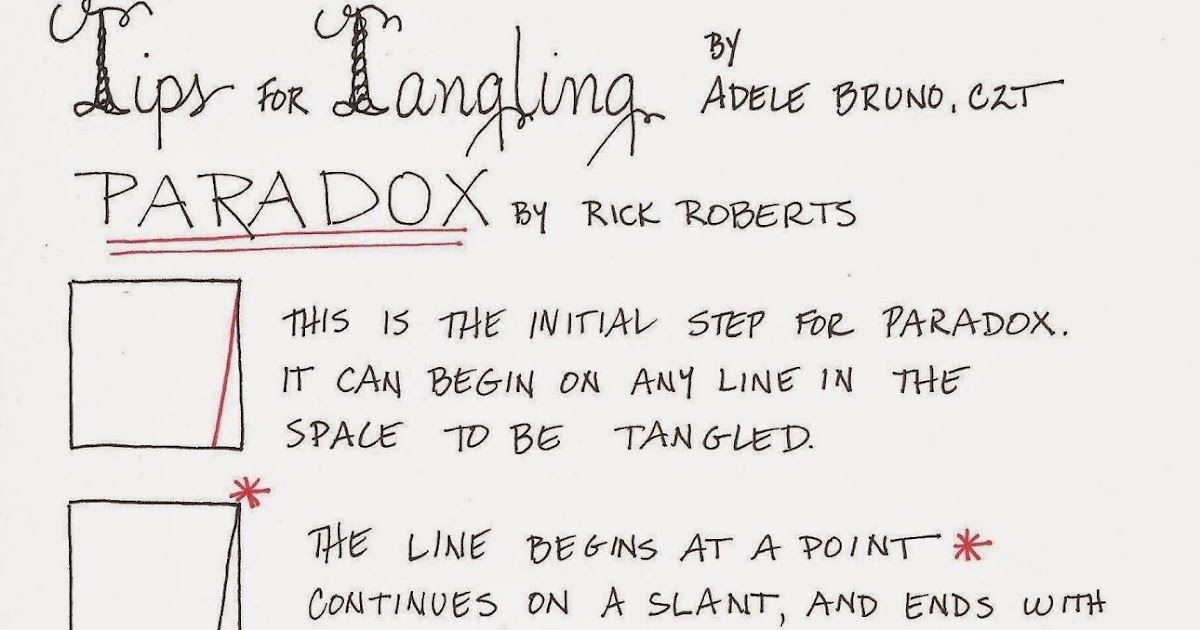 Tips FOR Tangling BY
ADELE BRUNO, CZT
PARADOX BY RICK ROBERTS
THIS IS THE INITIAL STEP FOR PARADOX.
IT CAN BEGIN ON ANY LINE IN THE
SPACE TO BE TANGLED.
*
THE LINE BEGINS AT A POINT *
CONTINUES ON A SLANT, AND ENDS WITH